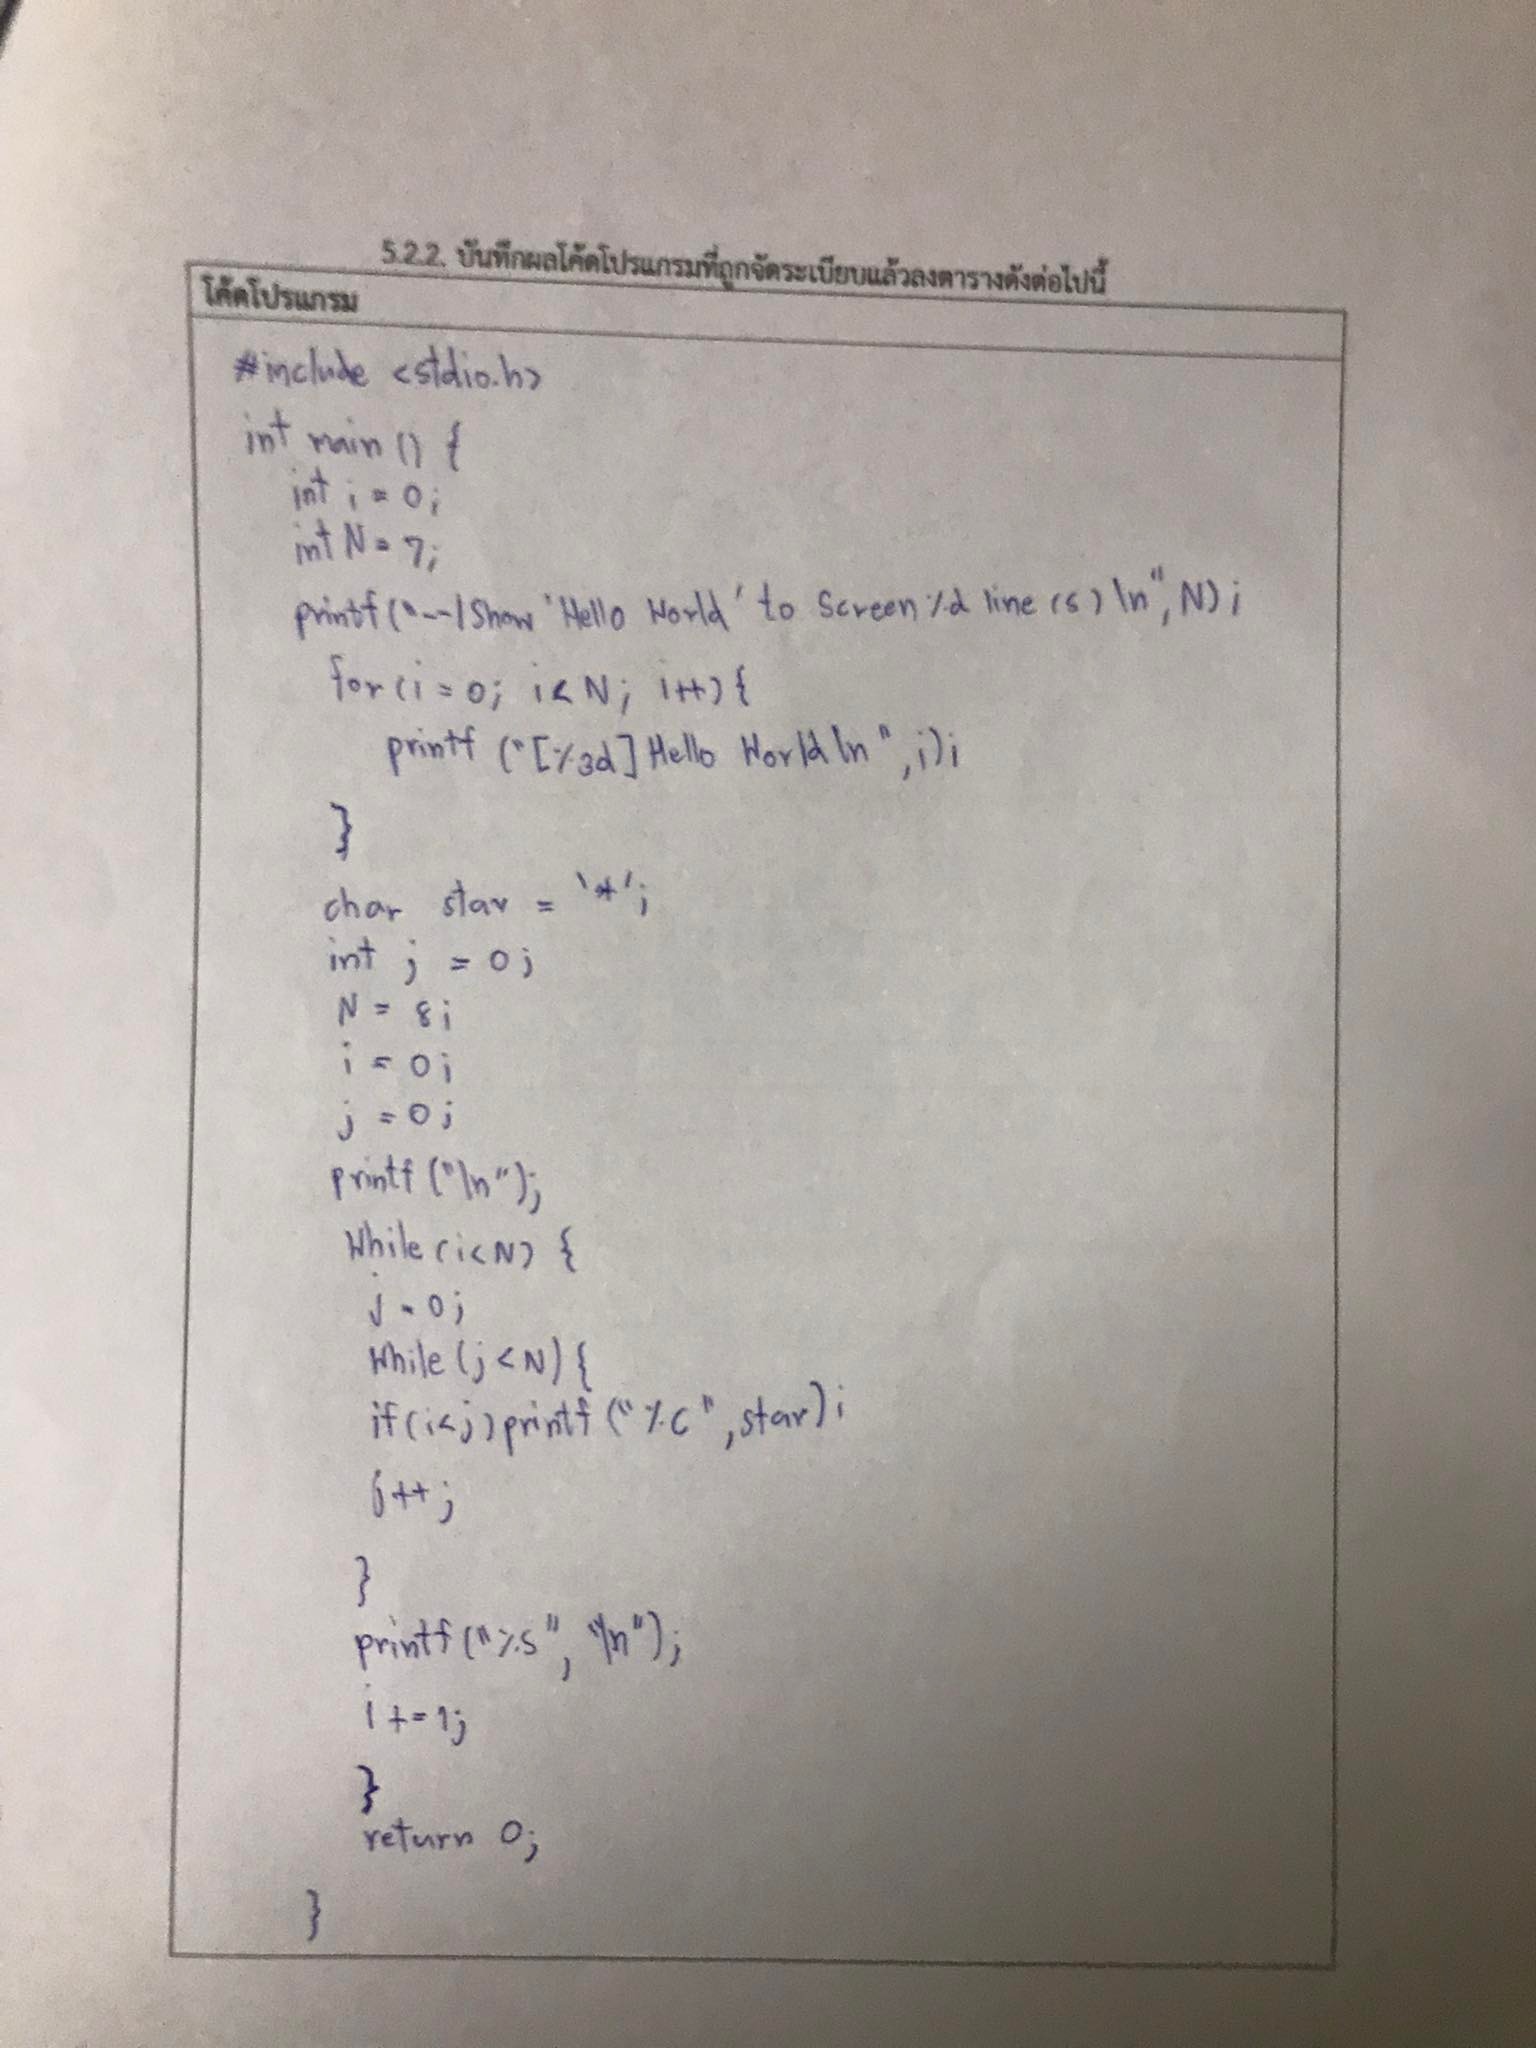 5.2.2. บันทึกผลโค้ดโปรแกรมที่ถูกจัดระเบียบแล้วลงตารางดังต่อไปนี้
โค้ดโปรแกรม
#include <stdio.h>
int main () {
int i = 0;
int N = 7;
printf("--|Show 'Hello World' to Screen %d line (s) \n", N);
for (i = 0; i < N; i++) {
printf ("[%3d] Hello World \n", i);
}
char star = '*';
int j = 0;
N = 8;
i = 0;
j = 0;
printf ("\n");
While (i<N) {
j = 0;
While (j < N) {
if (i<j) printf ("%c", star);
j++;
}
printf ("%s", "\n");
i += 1;
}
return 0;
}